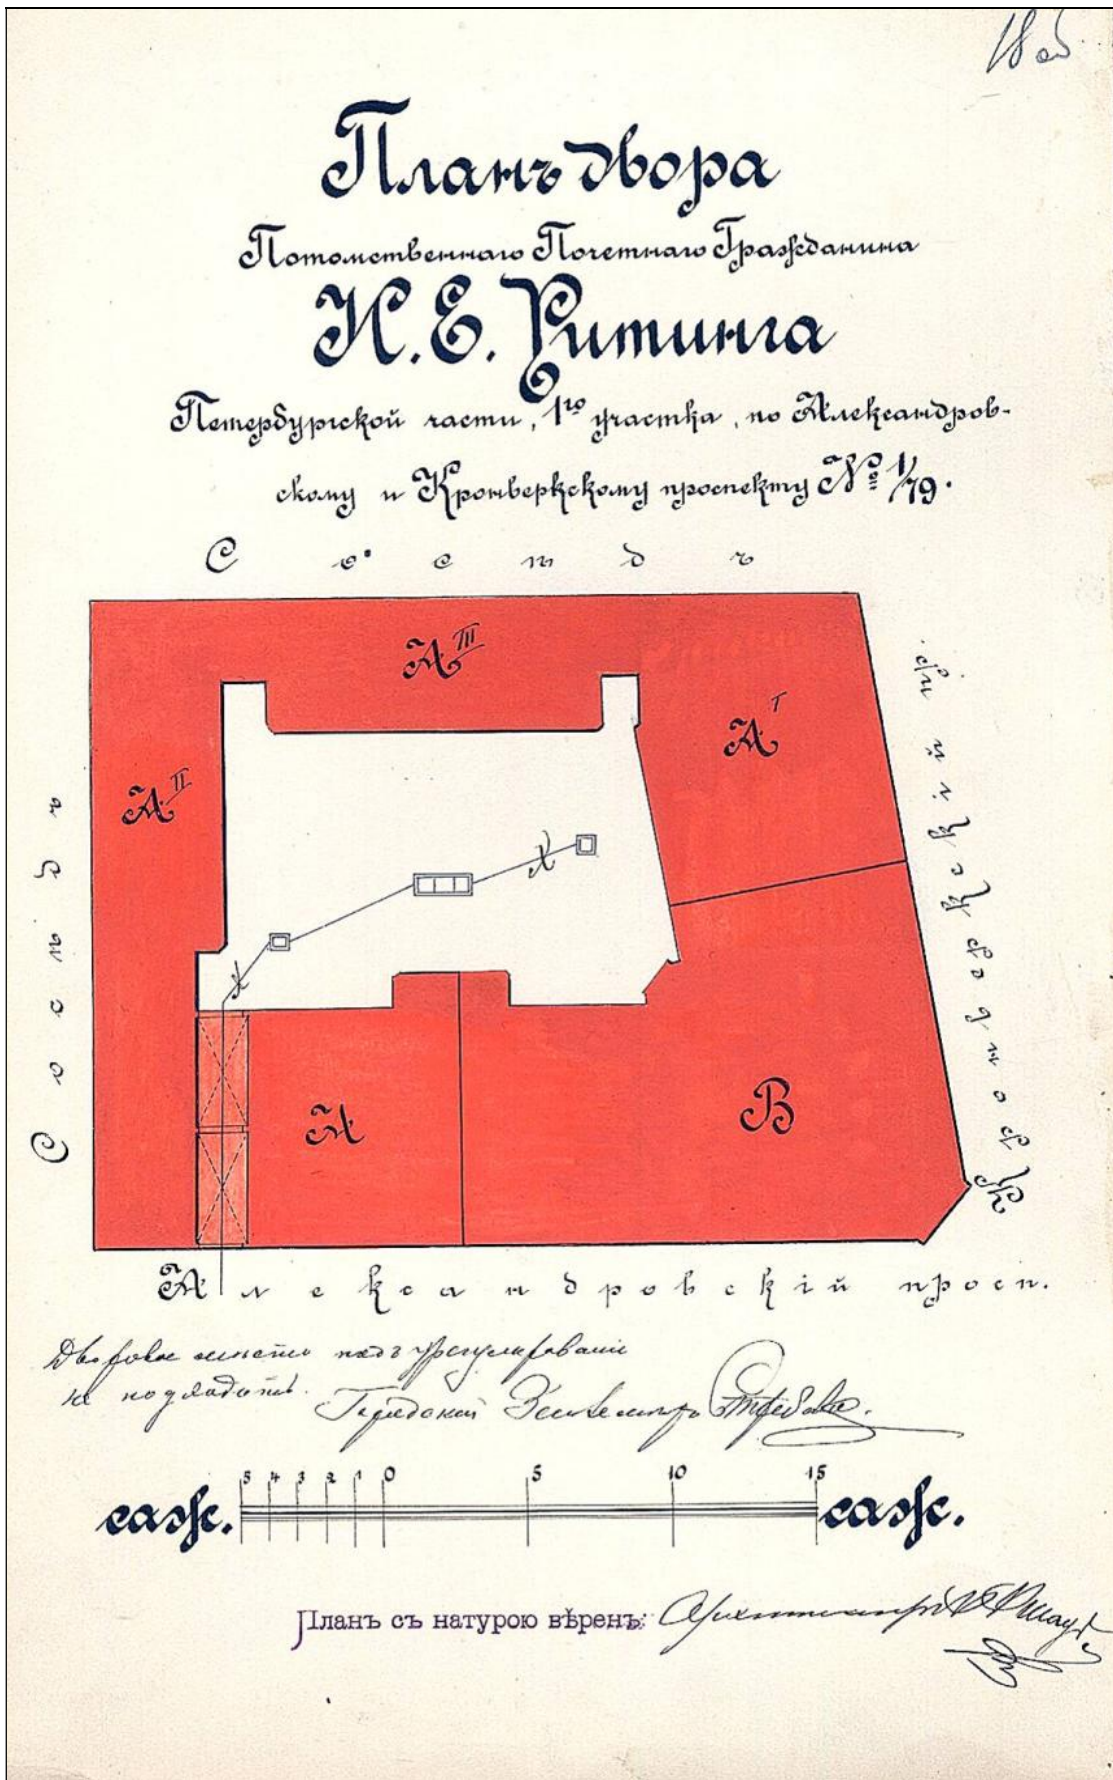 18 об
Планъ двора
Потомственнаго Почетнаго Гражданина
К. Е. Ритинга
Петербургской части, 1го участка, по Александров-
скому и Кронверкскому проспекту № 1/79.
Сосѣдъ
А III
А I
А II
Сосѣдъ
Кронверкскій пр.
А
В
Александровскій просп.
Дворовое мѣсто подъ урегулированіе
не подходитъ.
Городской Землемѣръ
саж. 5 4 3 2 1 0 5 10 15 саж.
Планъ съ натурою вѣренъ: Архитекторъ В. Шаубъ